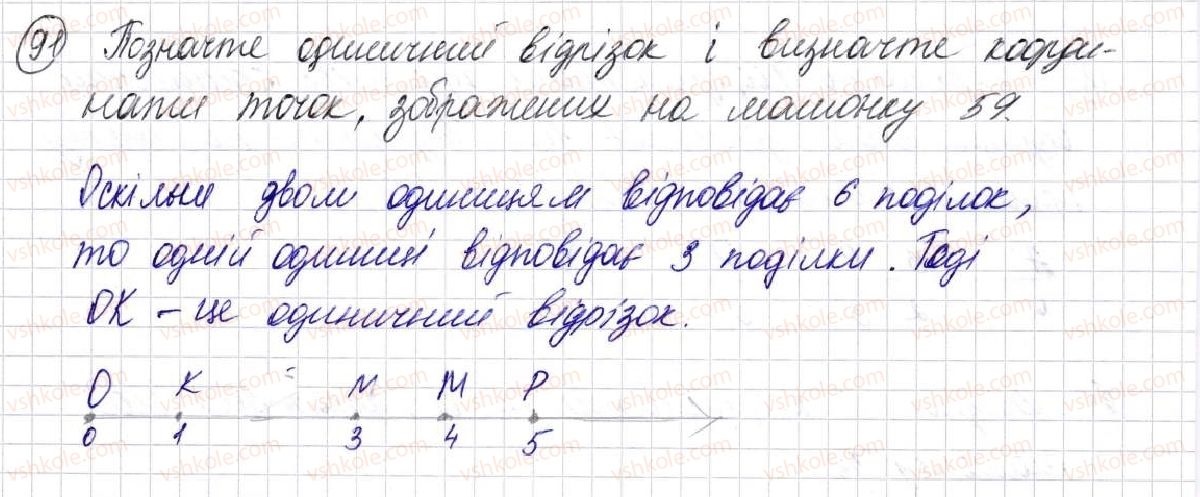 91 Позначте одиничний відрізок і визначте коорди-
нати точок, зображених на малюнку 59.
Оскільки двом одиницям відповідає 6 поділок,
то одній одиниці відповідає 3 поділки. Тоді
OK – це одиничний відрізок.
O K N M P
0 1 3 4 5